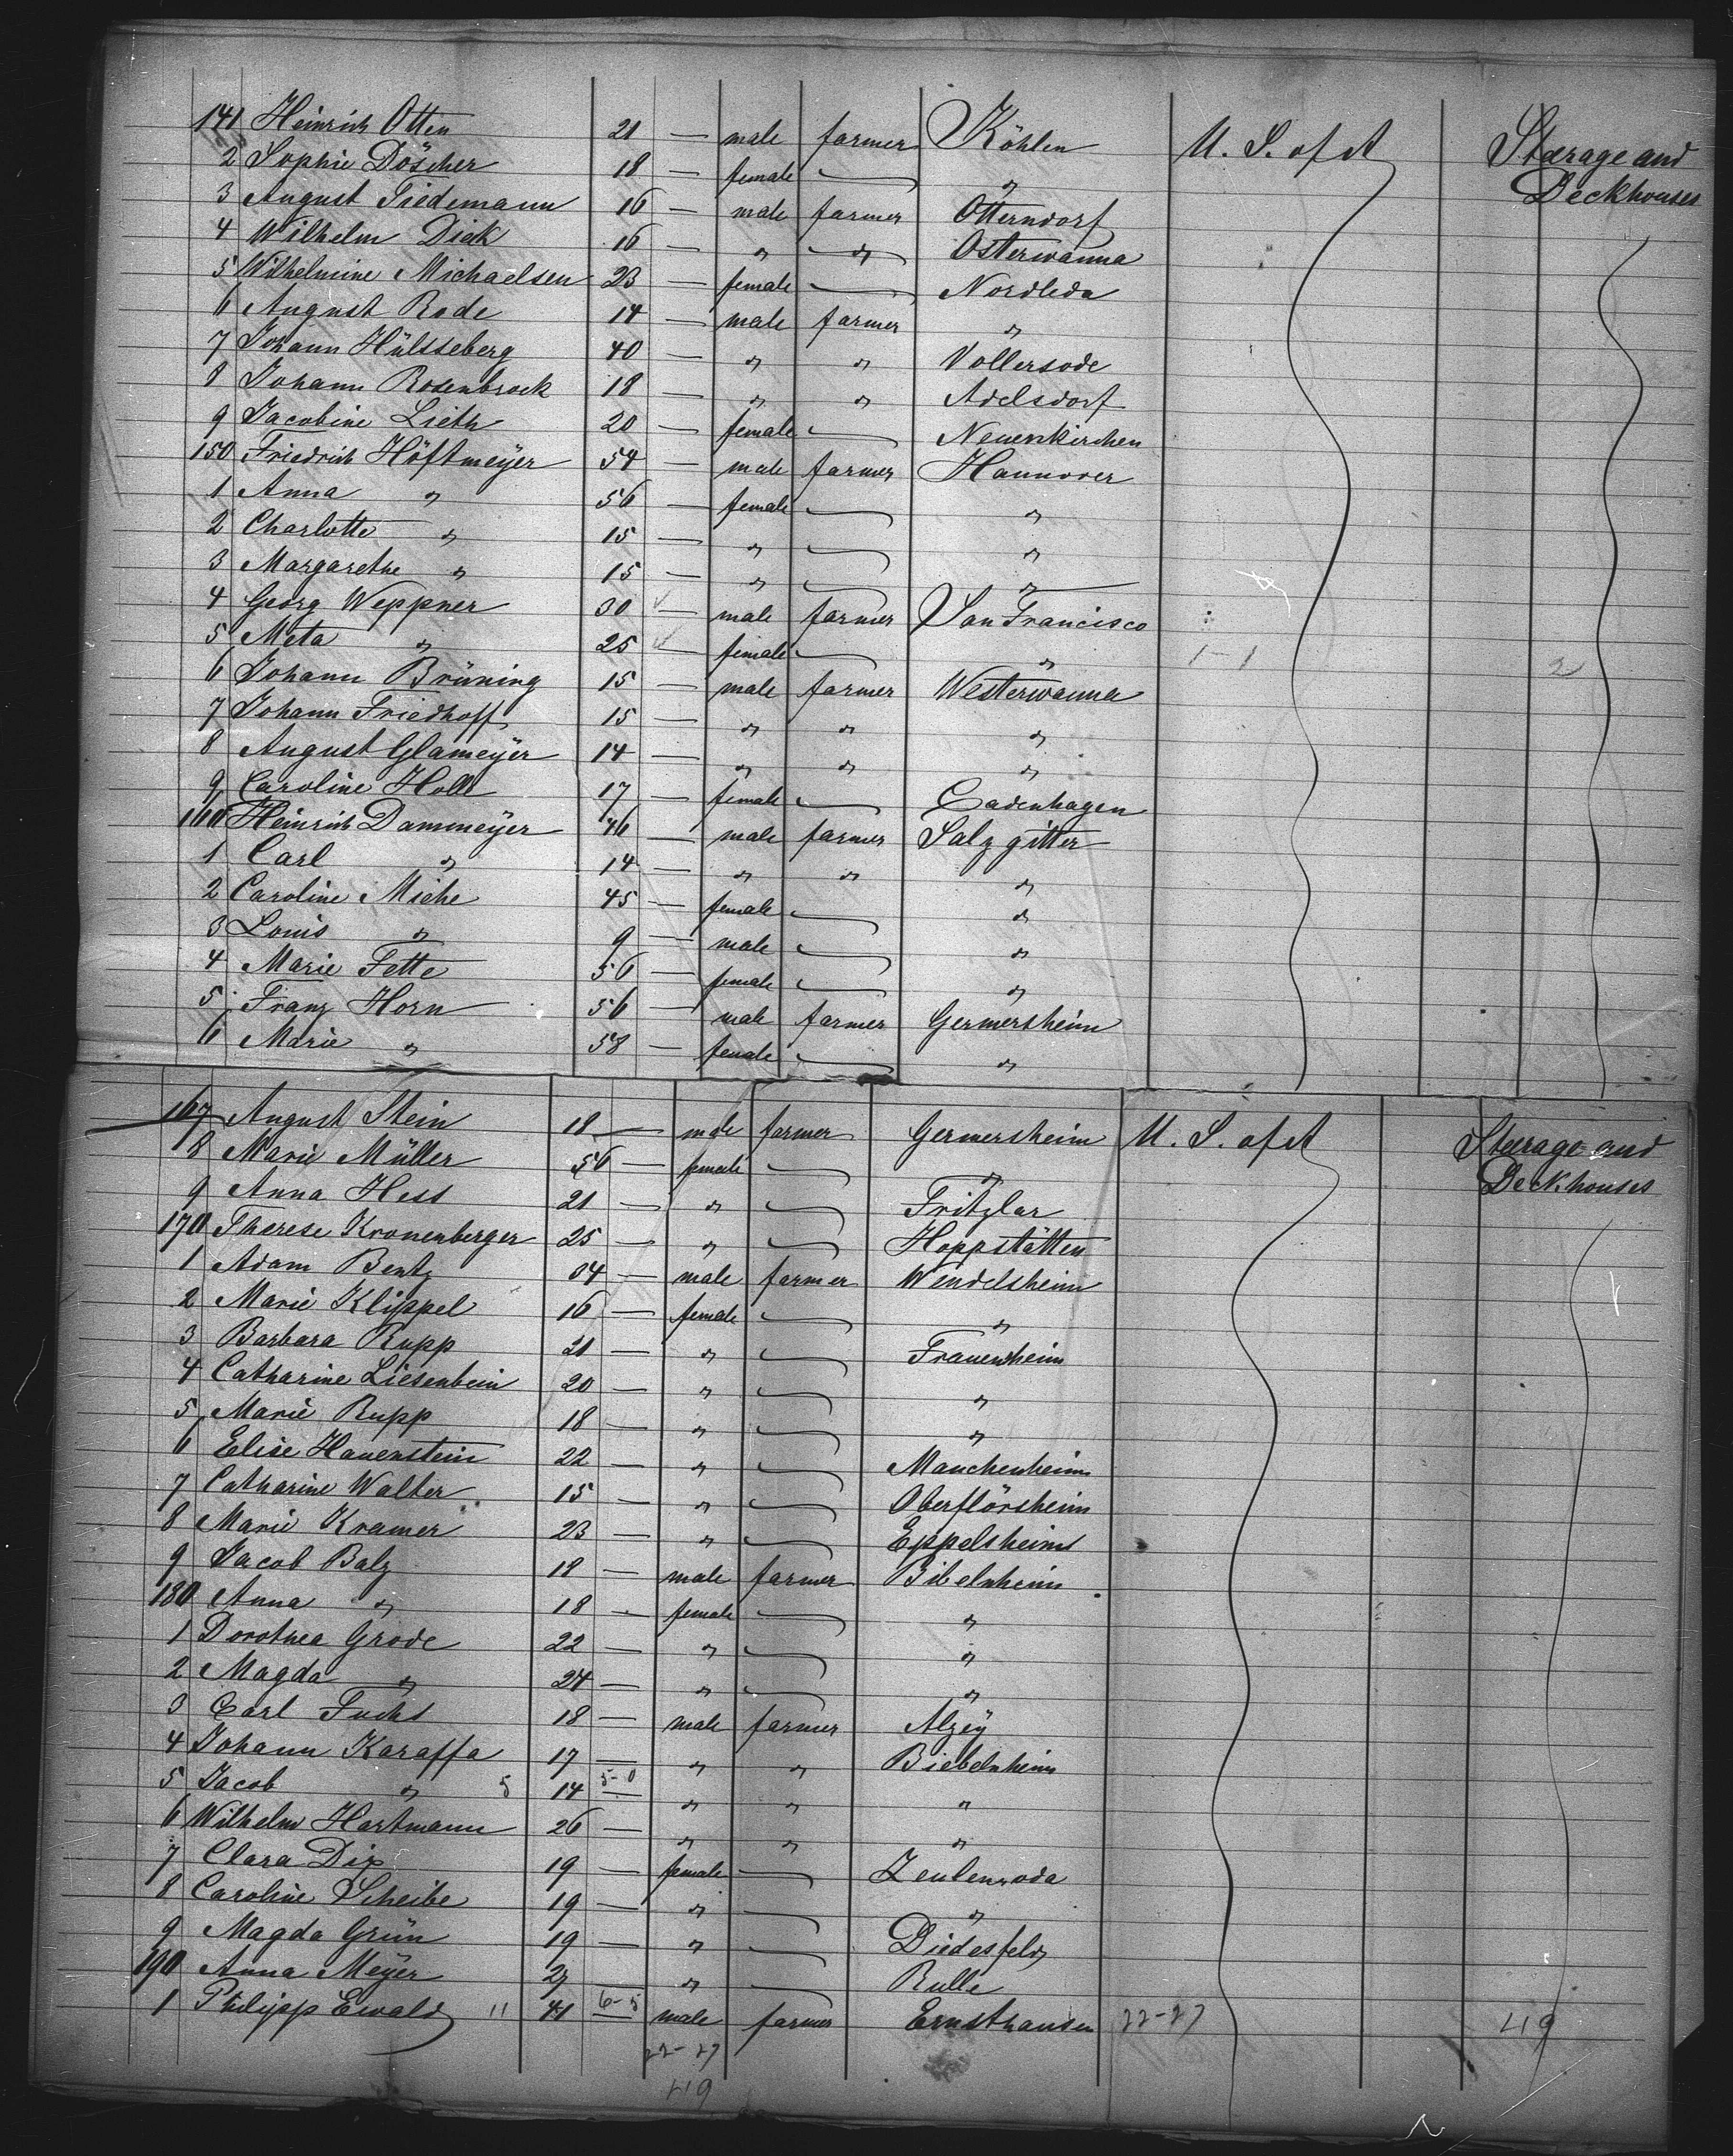 141 Heinrich Otten 21 — male farmer Köhlen U. S. of A Steerage and
2 Sophie Döscher 18 — female — " Deckhouses
3 August Tiedemann 16 — male farmer Otterndorf
4 Wilhelm Dick 16 — " " Osterwanna
5 Wilhelmine Michaelsen 23 — female — Nordleda
6 August Rode 14 — male farmer "
7 Johann Hülsseberg 40 — " " Vollersode
8 Johann Rosenbrock 18 — " " Adelsdorf
9 Jacobine Lieth 20 — female — Neuenkirchen
150 Friedrich Höftmeyer 54 — male farmer Hannover
1 Anna " 56 — female — "
2 Charlotte " 15 — " — "
3 Margarethe " 15 — " — "
4 Georg Weppner 30 — male farmer San Francisco
5 Meta " 25 — female — " 1-1 2
6 Johann Brüning 15 — male farmer Westerwanna
7 Johann Friedhoff 15 — " " "
8 August Glameyer 14 — " " "
9 Caroline Holl 17 — female — Cadenhagen
160 Heinrich Dammeyer 46 — male farmer Salzgitter
1 Carl " 14 — " " "
2 Caroline Miche 45 — female — "
3 Louis " 9 — male — "
4 Marie Fette 56 — female — "
5 Franz Horn 56 — male farmer Germersheim
6 Marie " 58 — female — "
167 August Stein 18 — male farmer Germersheim U. S. of A Steerage and
8 Marie Müller 56 — female — " Deckhouses
9 Anna Hess 21 — " — Fritzlar
170 Therese Kronenberger 25 — " — Hoppstätten
1 Adam Bentz 34 — male farmer Wendelsheim
2 Marie Klippel 16 — female — "
3 Barbara Rupp 21 — " — Frauensheim
4 Catharine Liesenbein 20 — " — "
5 Marie Rupp 18 — " — "
6 Elise Hauenstein 22 — " — Mauchenheim
7 Catharine Walter 15 — " — Oberflörsheim
8 Marie Kramer 23 — " — Eppelsheim
9 Jacob Balz 18 — male farmer Bibelnheim
180 Anna " 18 — female — "
1 Dorothea Grode 22 — " — "
2 Magda " 24 — " — "
3 Carl Fuchs 18 — male farmer Alzey
4 Johann Karaffa 17 — " " Biebelnheim
5 Jacob " 5 14 5-0 " " "
6 Wilhelm Hartmann 26 — " " "
7 Clara Dix 19 — female — Zeulenroda
8 Caroline Scheibe 19 — " — "
9 Magda Grün 19 — " — Diedesfeld
190 Anna Meyer 27 — " — Rulle
1 Philipp Ewald 11 41 6-5 male farmer Ernsthausen 22-27 49
22-27
49